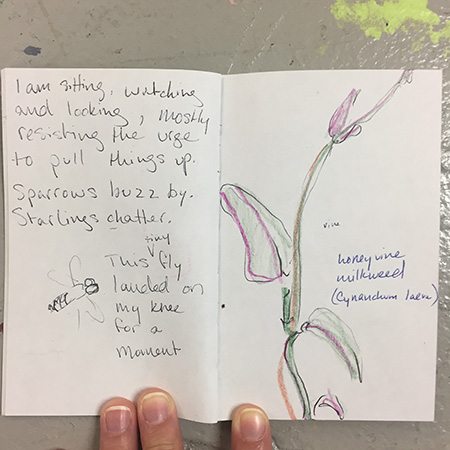 I am sitting, watching
and looking, mostly
resisting the urge
to pull things up.
Sparrows buzz by.
Starlings chatter.
tiny
This fly
landed on
my knee
for a
moment
vine
honeyvine
milkweed
(Cynanchum laeve)